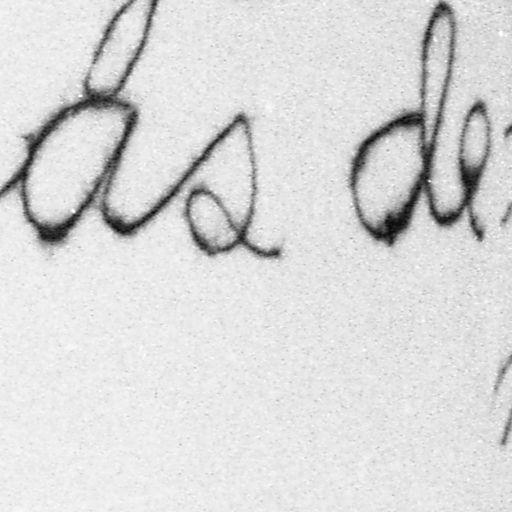 as de